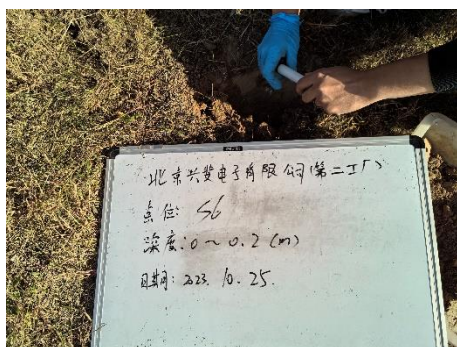 北京兴斐电子有限公司(第二工厂)
点位: S6
深度: 0~0.2 (m)
日期: 2023. 10. 25.